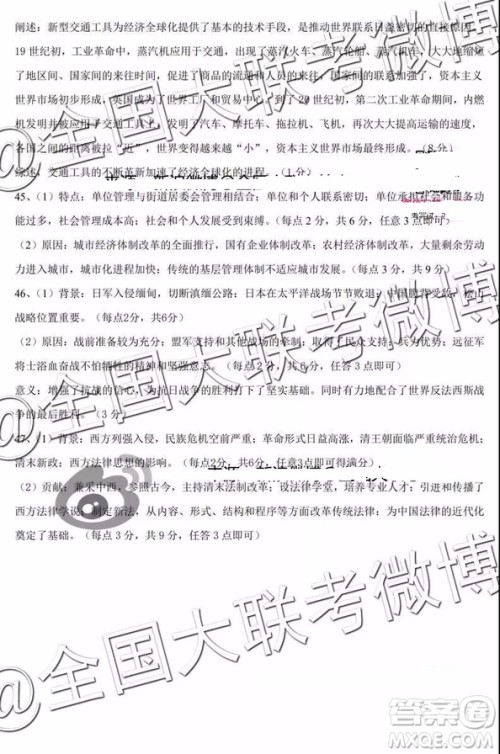 阐述：新型交通工具为经济全球化提供了基本的技术手段，是推动世界联系日益密切的直接原因。
19 世纪初，工业革命中，蒸汽机应用于交通，出现了蒸汽火车、蒸汽轮船、蒸汽机车，大大地缩短
了地区间、国家间的来往时间，促进了地区间、国家间的来往，国家间的联系加强了，资本主义
世界市场初步形成，英国成为了世界工厂和贸易中心；到了 20 世纪初，第二次工业革命期间，燃
机发明并被应用于交通工具上，发明了汽车、摩托车、拖拉机、飞机，再次大大提高运输的速度，
各国之间的距离被拉“近”，世界变得越来越“小”，资本主义世界市场最终形成。（8分）
综述，交通工具的不断革新加速了经济全球化的进程
45、（1）特点：单位管理与街道居委会管理相结合；单位和个人联系密切；单位承担
能过多，社会管理成本高；社会和个人发展受到束缚。（每点 2 分，共 6 分，任意 3 点即可）
（2）原因：城市经济体制改革的全面推行，国有企业体制改革；农村经济体制改革，大量剩余劳
动力进入城市，城市化进程加快；传统的基层管理体制的弊端。（每点 3 分，共 9 分）
46、（1）背景：日军入侵缅甸，切断滇缅公路；日本在太平洋战场节节败退；中国
战略位置重要。（每点2分，共6分）
（2）原因：战前准备较为充分；盟军支持和其他战场的牵制；取得了民众支持；兵力优势；远征军
将士浴血奋战不怕牺牲的精神和坚强意志。（每点 2 分，共 6 分，任答 3 点即可）
意义：增强了抗战的信心，为抗日战争的胜利打下了坚实基础。同时有力地配合了世界反法西斯战
争的最后胜利。（3 分）
47、（1）背景：西方列强入侵，民族危机空前严重；革命形式日益高涨，清王朝面临严重统治危机；
清末新政；西方法律思想的影响。（每点2分，共6分，任答三点即可得满分）
（2）贡献：兼采中西，参照古今，主持清末法制改革；设法律学堂，培养专业人才；引进了
西方法律学说；制定新法，从内容、形式、结构和程序等方面改革传统法律；为中国法律的近代化
奠定了基础。（每点 3 分，共 9 分，任答 3 点即可）
@全国大联考微博
@全国大联考微博
@全国大联考微博
答案圈
MXQE.COM